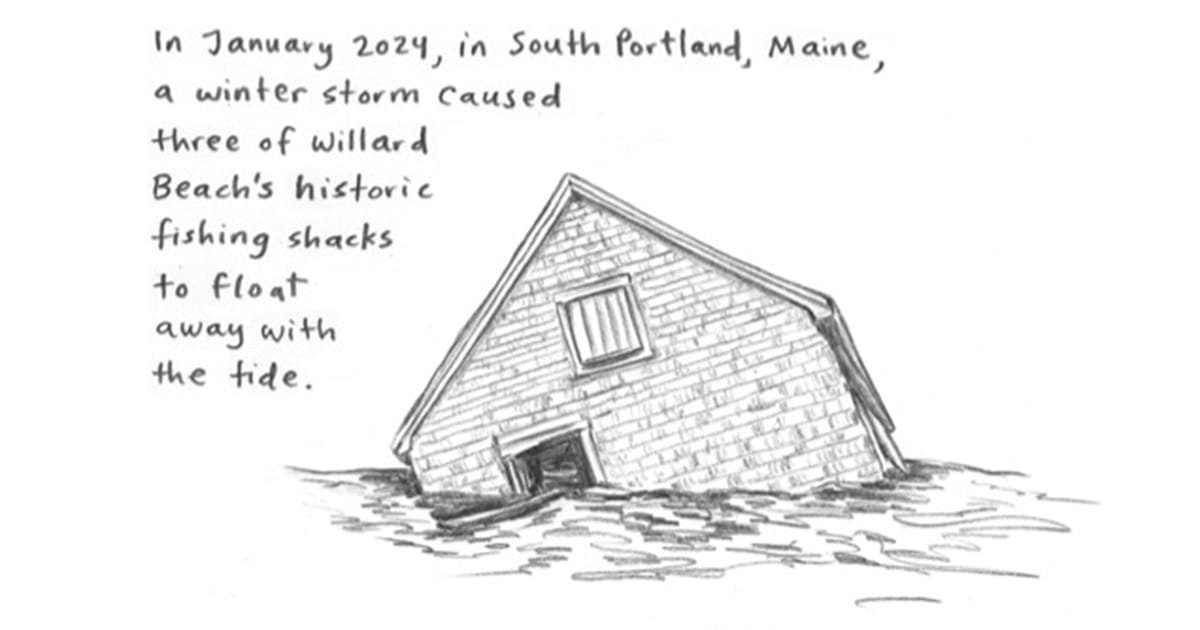 In January 2024, in South Portland, Maine,
a winter storm caused
three of Willard
Beach's historic
fishing shacks
to float
away with
the tide.